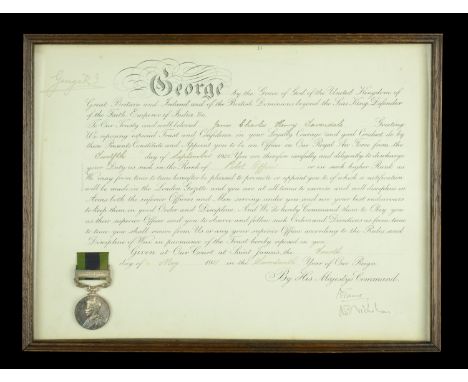 George
by the Grace of God of the United Kingdom of
Great Britain and Ireland and of the British Dominions beyond the Seas King Defender
of the Faith Emperor of India &c.
To Our Trusty and well beloved James Charles Henry Greeting
We reposing especial Trust and Confidence in your Loyalty Courage and good Conduct do by
these Presents Constitute and Appoint you to be an Officer in Our Royal Air Force from the
Twelfth day of September You are therefore carefully and diligently to discharge
your Duty as such in the Rank of Pilot Officer or in such higher Rank as
We may from time to time hereafter be pleased to promote or appoint you to of which a notification
will be made in the London Gazette and you are at all times to exercise and well discipline in
Arms both the inferior Officers and Men serving under you and use your best endeavours
to keep them in good Order and Discipline And We do hereby Command them to Obey you
as their superior Officer and you to observe and follow such Orders and Directions as from time
to time you shall receive from Us or any your superior Officer according to the Rules and
Discipline of War in pursuance of the Trust hereby reposed in you
Given at Our Court at Saint James's the Fourth
day of May in the Year of Our Reign
By His Majesty's Command.